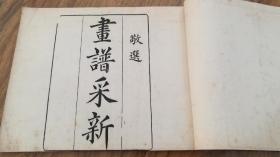 敬選
畫譜采新